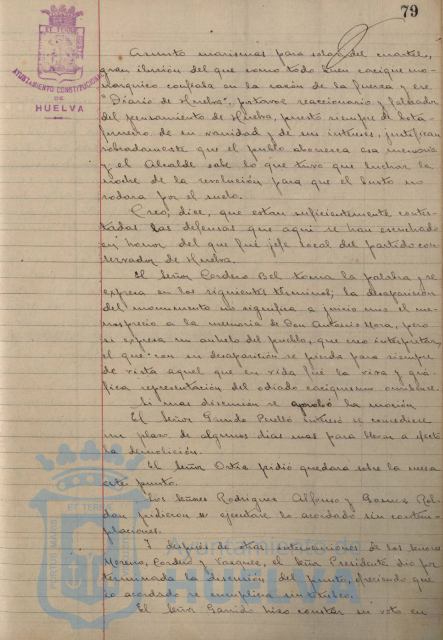 79
AYUNTAMIENTO CONSTITUCIONAL
DE
HUELVA
Asunto marismas para solar del cuartel,
gran ilusión del que como todo buen cacique mo-
nárquico confiaba en la razón de la fuerza y ese
"Diario de Huelva", portavoz reaccionario y falseador
del pensamiento de Huelva, puesto siempre de bota-
fumeiro de su vanidad y de sus intereses, justifican
sobradamente que el pueblo aborrezca esa memoria
y el Alcalde sabe lo que tuvo que luchar la
noche de la revolución para que el busto no
rodara por el suelo.
Creo, dice, que están suficientemente contes-
tadas las defensas que aquí se han escuchado
en honor del que fué jefe local del partido con-
servador de Huelva.
El Señor Cordero Bel toma la palabra y se
expresa en los siguientes términos; la desaparición
del monumento no significa a juicio mio el me-
nosprecio a la memoria de Don Antonio Mora, pero
si expresa un anhelo del pueblo, que creo interpretar,
el que con su desaparición se pierda para siempre
de vista aquel que en vida fué la viva y grá-
fica representación del odiado caciquismo onubense.
Sin mas discusión se aprobó la moción
El Señor Garrido Perelló interesó se concediese
un plazo de algunos dias mas para llevar a efecto
la demolición.
El Señor Ostia pidió quedara sobre la mesa
este punto.
Los Señores Rodriguez Alfonso y Gomez Rol-
dan pidieron se ejecutare lo acordado sin contem-
placiones.
Y después de otras intervenciones de los Señores
Moreno, Cordero y Vazquez, el Señor Presidente dió por
terminada la discusión del punto, ofreciendo que
lo acordado se cumpliría sin titubeo.
El Señor Garrido hizo constar su voto en
Ayuntamiento de
HUELVA